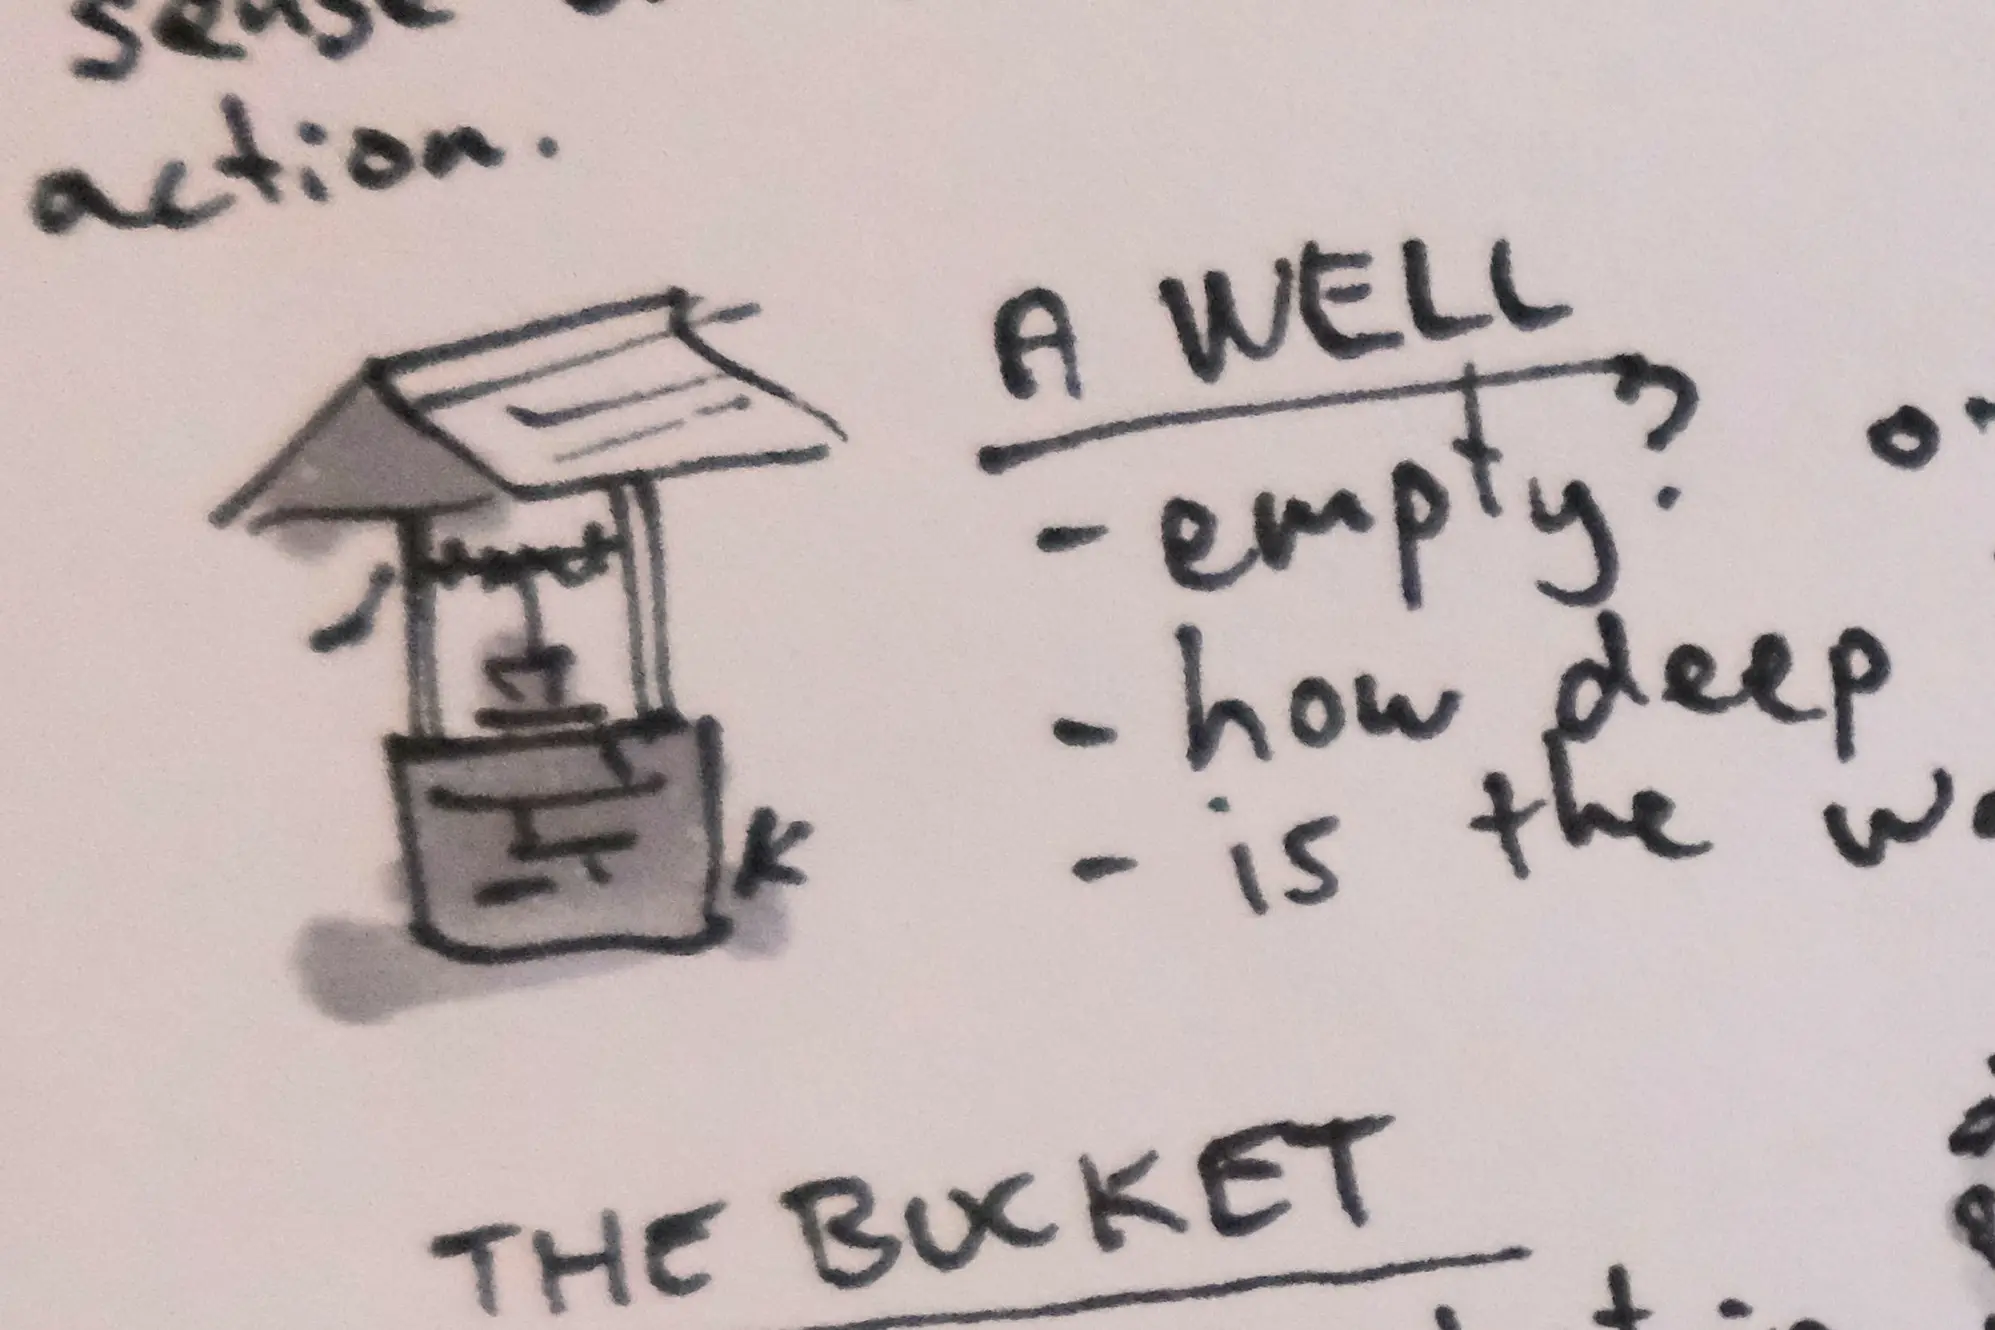 sense
action.
A WELL
- empty?
- how deep
- is the
THE BUCKET